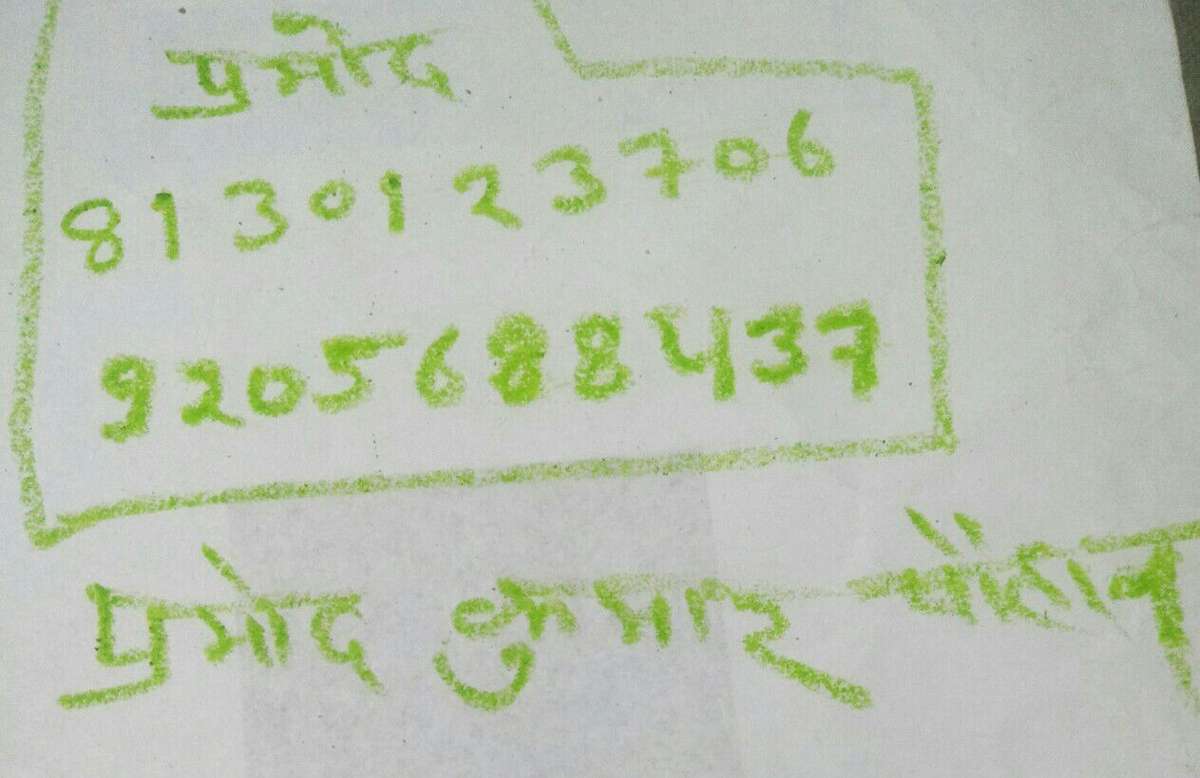 प्रमोद
8130123706
9205688437
प्रमोद कुमार चौहान